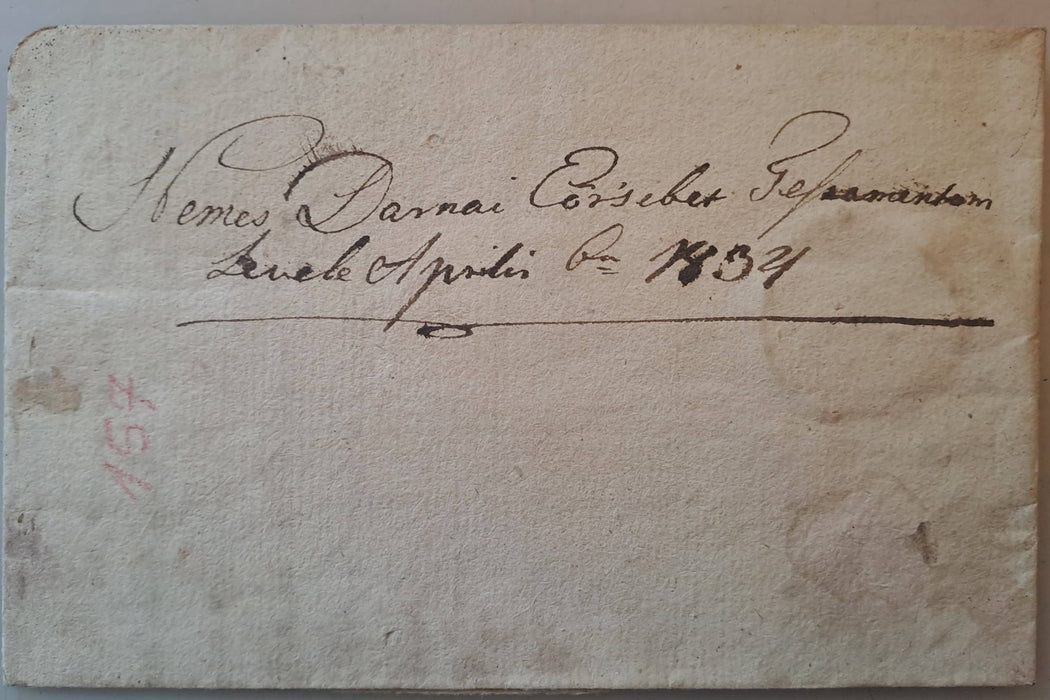 Nemes Darnai Eör'sebet Testamentom
Levele Aprilis 6n 1834
157